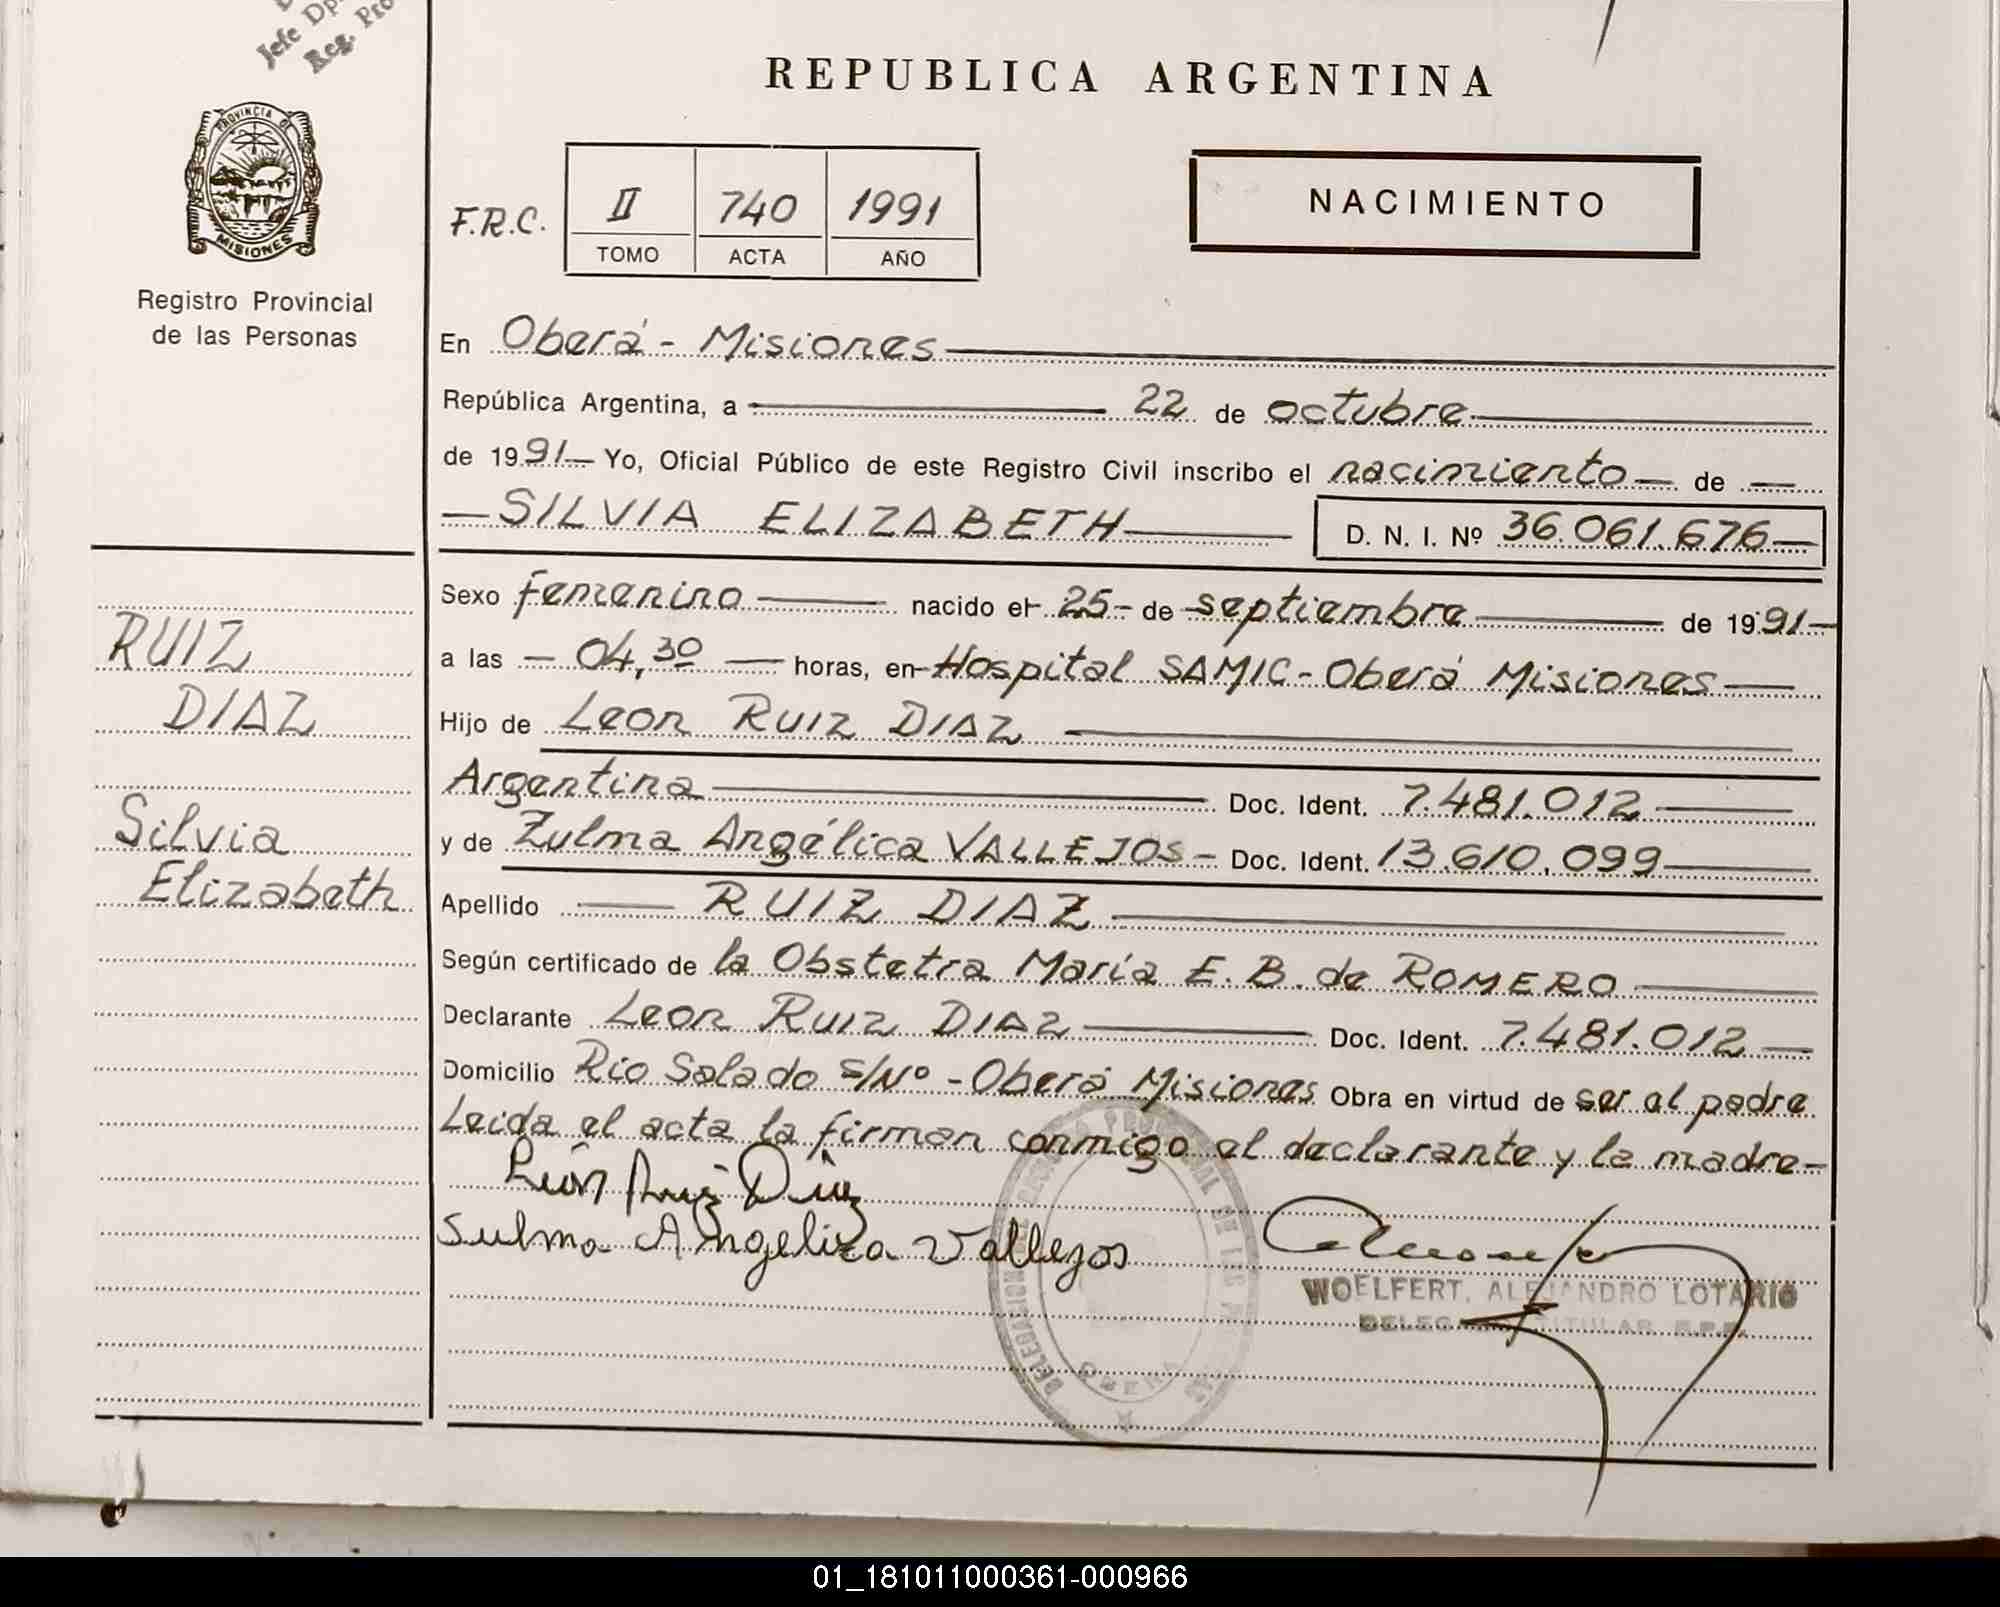 Jefe Dp
Reg. Pro
PROVINCIA DE
MISIONES
Registro Provincial
de las Personas
REPUBLICA ARGENTINA
F.R.C.
II 740 1991
TOMO ACTA AÑO
NACIMIENTO
En Oberá - Misiones
República Argentina, a 22 de octubre
de 1991 Yo, Oficial Público de este Registro Civil inscribo el nacimiento de
SILVIA ELIZABETH
D. N. I. Nº 36.061.676
Sexo femenino nacido el 25 de septiembre de 1991
a las 04,30 horas, en Hospital SAMIC - Oberá Misiones
Hijo de Leon RUIZ DIAZ
Argentina Doc. Ident. 7.481.012
y de Zulma Angélica VALLEJOS - Doc. Ident. 13.610.099
Apellido RUIZ DIAZ
Según certificado de la Obstetra María E. B. de ROMERO
Declarante Leon RUIZ DIAZ Doc. Ident. 7.481.012
Domicilio Rio Salado S/Nº - Oberá Misiones Obra en virtud de ser el padre
Leida el acta la firman conmigo el declarante y la madre
León Ruiz Díaz
Sulma Angelica Vallejos
RUIZ
DIAZ
Silvia
Elizabeth
WOELFERT, ALEJANDRO LOTARIO
TITULAR R.P.P.
OBERA
01_181011000361-000966